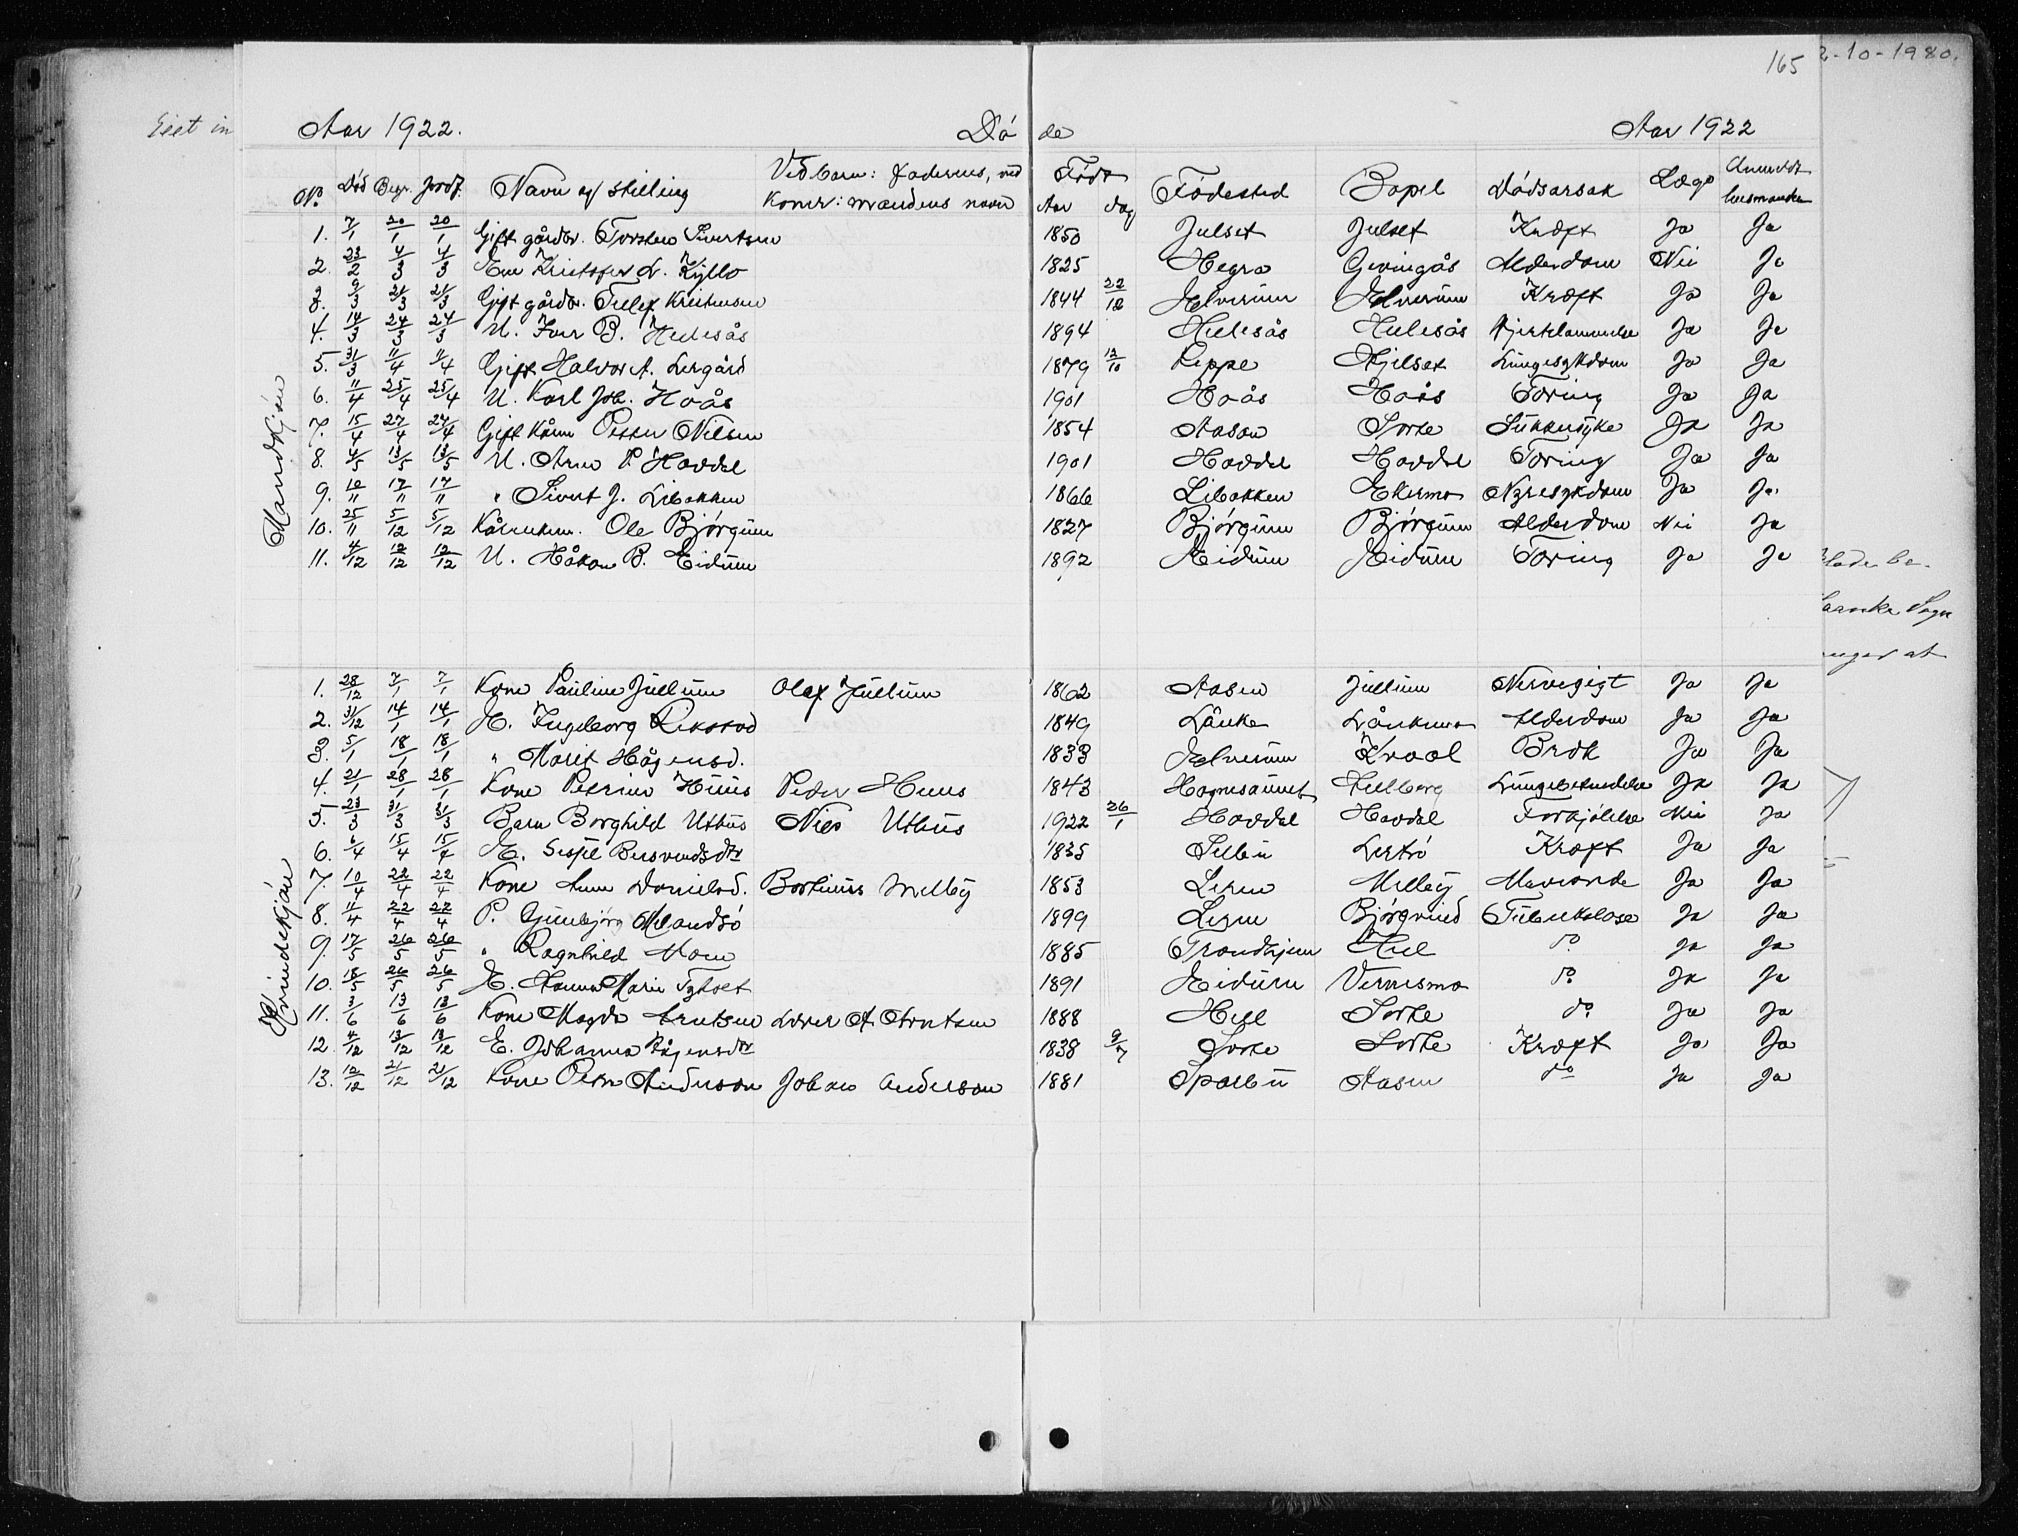 165
2-10-1980.
Eiet in
Aar 1922. Dö de Aar 1922
No. Död Begr. Jordf. Navn og stilling Ved barn: faderens, ved Koner: mandens navn Födt Aar dag Födested Bopel Dödsarsak Læge Anmeldt
Mandkjön
1. 7/1 20/1 20/1 Gift gårdbr. Torsten Sivertsen 1850 Julset Julset Kræft Ja Ja
2. 23/2 4/3 4/3 Em Kristofer N. Kyllo 1825 Hegra Gevingås Alderdom Nei Ja
3. 9/3 21/3 21/3 Gift gårdbr. Tellef Kristensen 1844 22/12 Elverum Elverum Kræft Ja Ja
4. 14/3 24/3 24/3 U. Ivar B. Helesås 1894 Helesås Helesås Hjertelammelse Ja Ja
5. 31/3 11/4 11/4 Gift Halvor A. Lergård 1879 12/10 Reppe Hjelset Lungesykdom Ja Ja
6. 11/4 25/4 25/4 U. Karl Joh. Hoås 1901 Hoås Hoås Tæring Ja Ja
7. 15/4 27/4 27/4 Gift Kårm Petter Nilsen 1854 Aasen Sorte Sukkersyke Ja Ja
8. 4/5 13/5 13/5 U. Arne P. Havdal 1901 Havdal Havdal Tæring Ja Ja
9. 10/11 17/11 17/11 " Sivert J. Libakken 1866 Libakken Ekermo Nyresykdom Ja Ja
10. 25/11 5/12 5/12 Kårenkem. Ole Bjørgum 1827 Bjørgum Bjørgum Alderdom Nei Ja
11. 4/12 12/12 12/12 U. Håkon B. Eidum 1892 Eidum Eidum Tæring Ja Ja
Kvindekjön
1. 28/12 7/1 7/1 Kone Pauline Jullum Olaf Jullum 1862 Aasen Jullum Nervegigt Ja Ja
2. 31/12 14/1 14/1 E. Ingeborg Rikstad 1849 Lånke Lånkemo Alderdom Ja Ja
3. 5/1 18/1 18/1 " Marit Hågensd. 1833 Elverum Kvaal Brok Ja Ja
4. 21/1 28/1 28/1 Kone Petrine Huus Peder Huus 1843 Hognesaunet Hellberg Lungebetændelse Ja Ja
5. 23/3 31/3 31/3 Barn Borghild Uthus Nils Uthus 1922 26/1 Havdal Havdal Forkjølelse Nei Ja
6. 6/4 15/4 15/4 E. Sissel Bersvendsdtr 1835 Selbu Lertrö Kræft Ja Ja
7. 10/4 22/4 22/4 Kone Anne Danielsd. Bortinus Melby 1853 Leren Melby Mavesonde Ja Ja
8. 11/4 22/4 22/4 P. Gunbjörg Mandsö 1899 Leren Bjørgmed Tuberkulose Ja Ja
9. 17/5 26/5 26/5 " Ragnhild Moen 1885 Trondhjem Hell do Ja Ja
10. 18/5 26/5 26/5 E. Hanna Marie Fyhset 1891 Eidum Vernesmo do Ja Ja
11. 3/6 13/6 13/6 Kone Magda Arntsen Lorer A. Arntsen 1888 Hell Sorte do Ja Ja
12. 4/12 13/12 13/12 E. Johanna Hågensdtr 1838 9/7 Sorte Sorte Kræft Ja Ja
13. 12/12 21/12 21/12 Kone Petra Anderson Johan Anderson 1881 Sparbu Aasen do Ja Ja